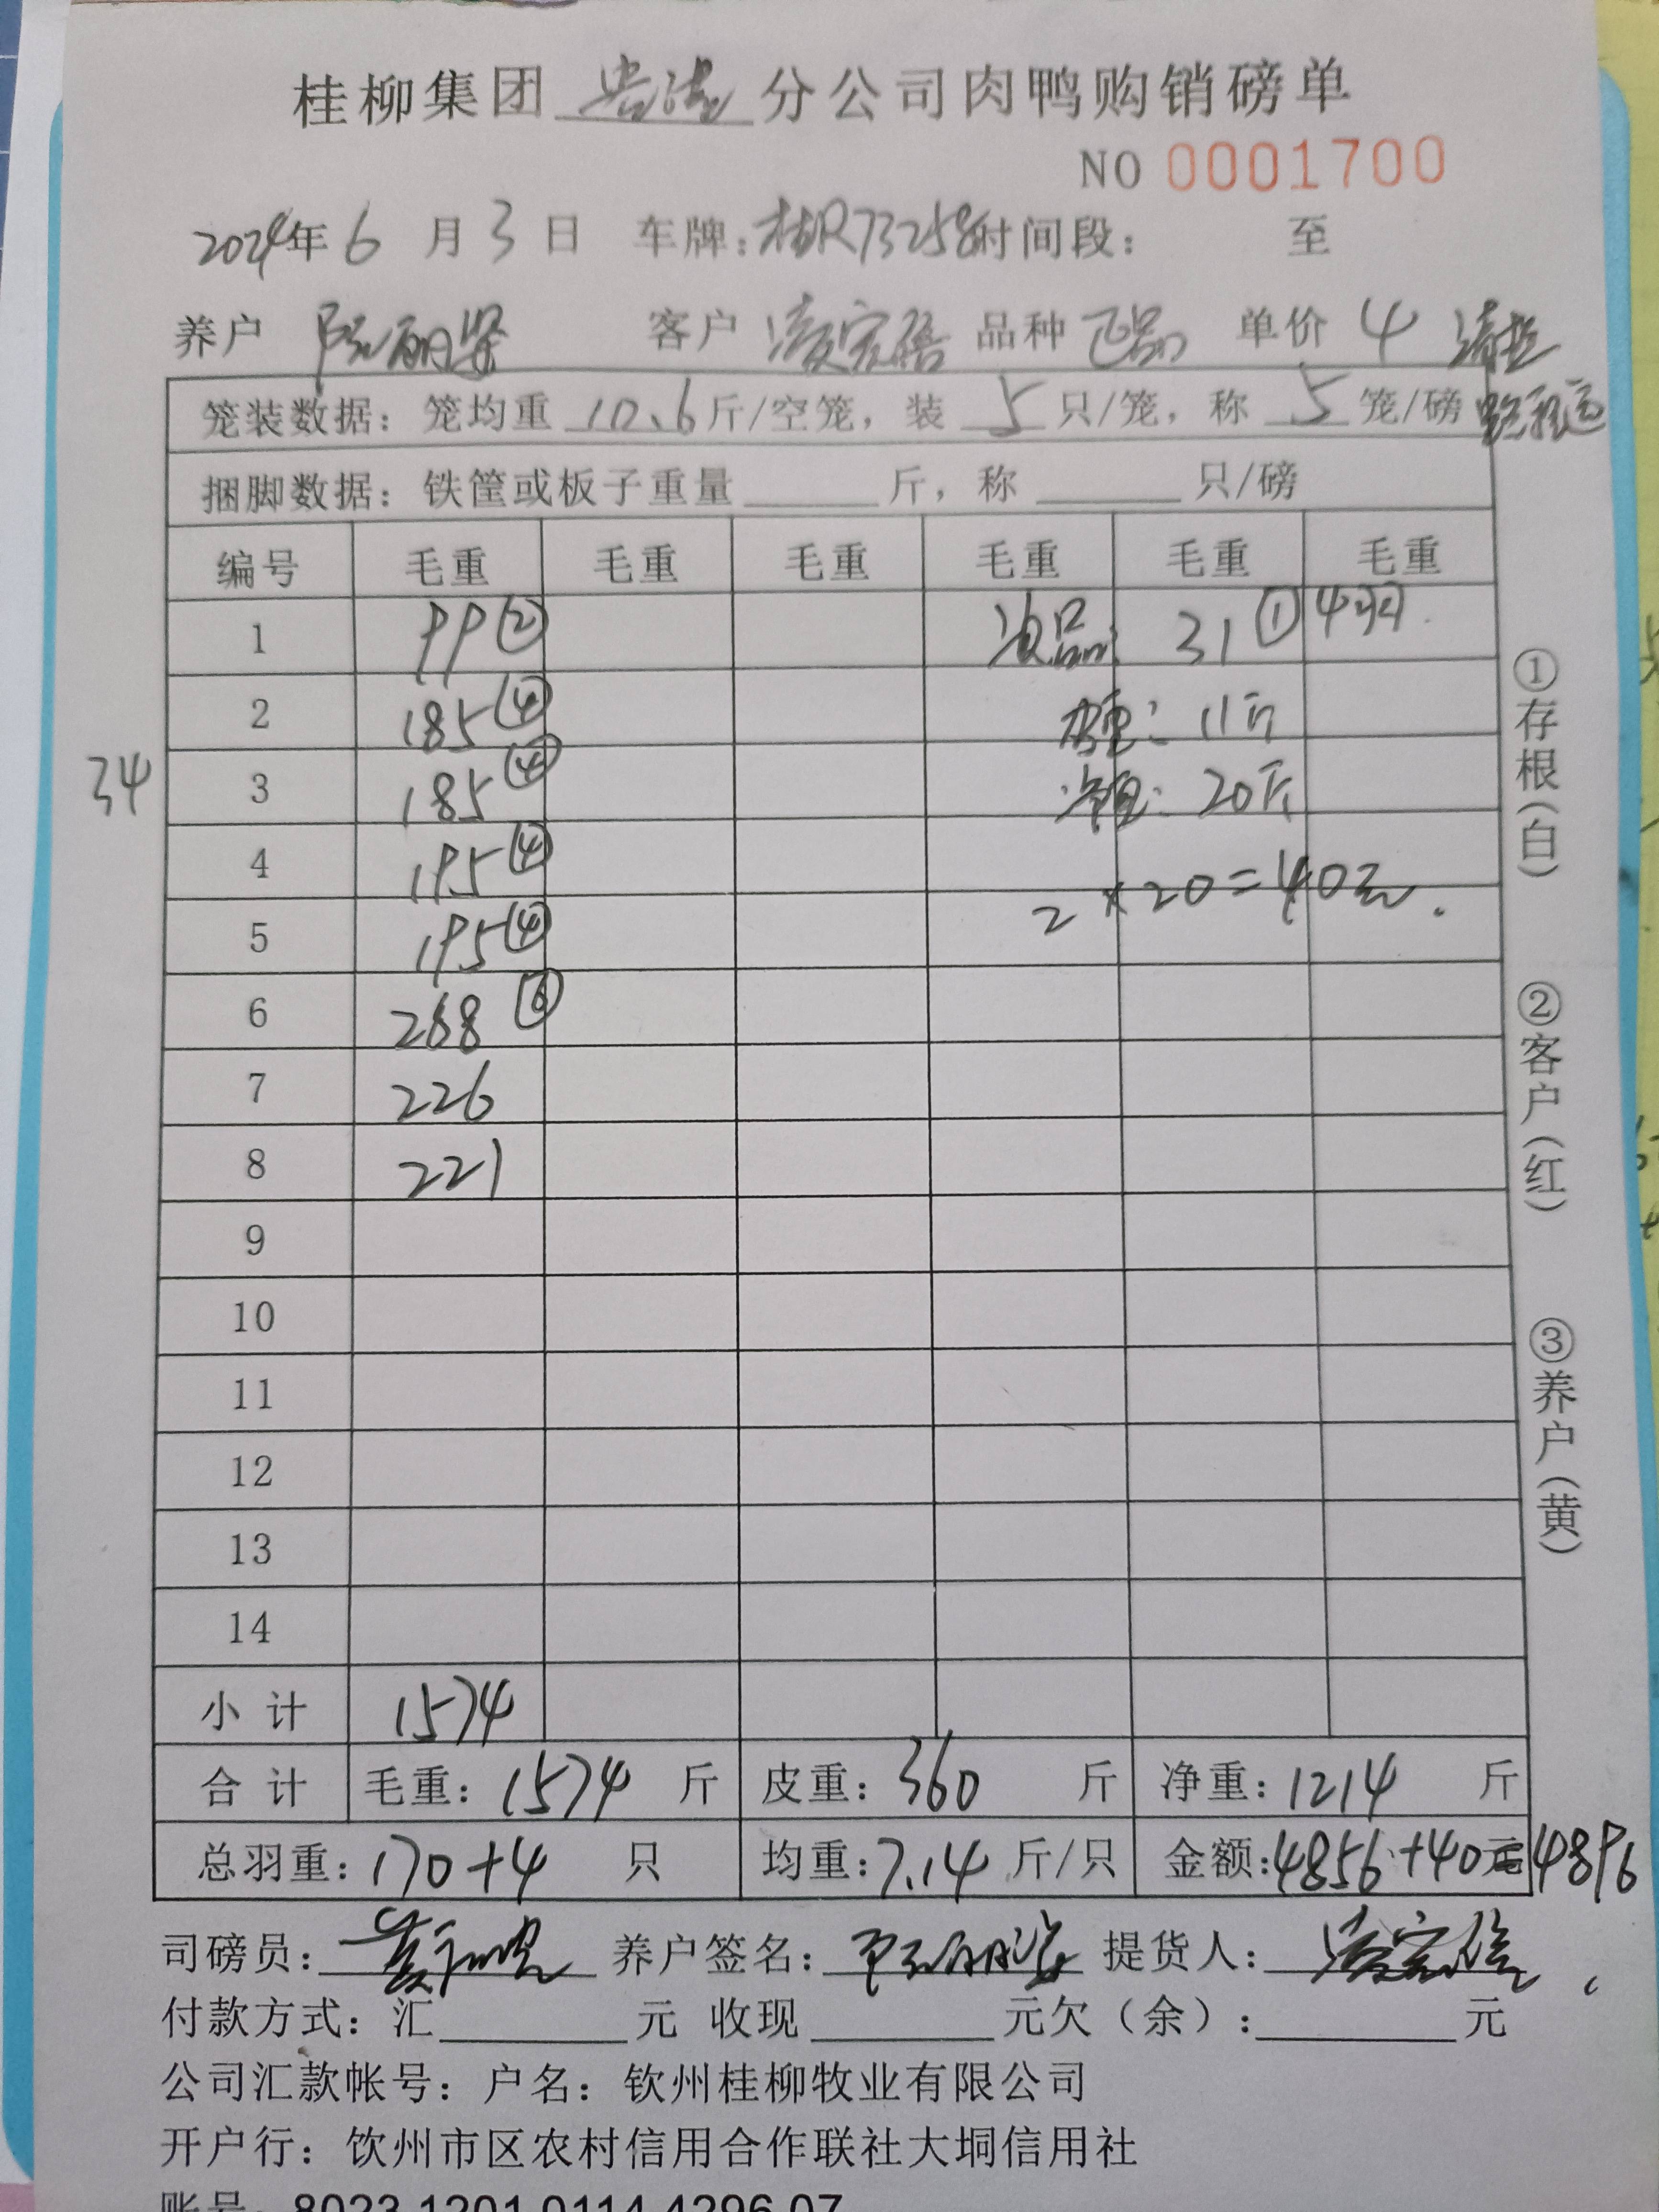 桂柳集团 分公司肉鸭购销磅单
NO 0001700
2024年 6 月 3 日 车牌：桂R73258 时间段： 至
养户 陈丽 客户 凌宏 品种 正品 单价 4
笼装数据：笼均重 10.6 斤/空笼，装 5 只/笼，称 5 笼/磅
捆脚数据：铁筐或板子重量 斤，称 只/磅
编号 毛重 毛重 毛重 毛重 毛重 毛重
1 99② 次品： 31① 4羽.
2 185④ 皮重：11斤
34
3 185④ 净重：20斤
4 195④ 2×20=40元.
5 195④
6 268⑥
7 226
8 221
9
10
11
12
13
14
小 计 1574
合 计 毛重：1574 斤 皮重：360 斤 净重：1214 斤
总羽重：170+4 只 均重：7.14 斤/只 金额：4856+40元=4896
①存根（白）
②客户（红）
③养户（黄）
司磅员： 养户签名： 提货人：
付款方式：汇 元 收现 元欠（余）： 元
公司汇款帐号：户名：钦州桂柳牧业有限公司
开户行：钦州市区农村信用合作联社大垌信用社
账号：8023 1201 0114 4296 07